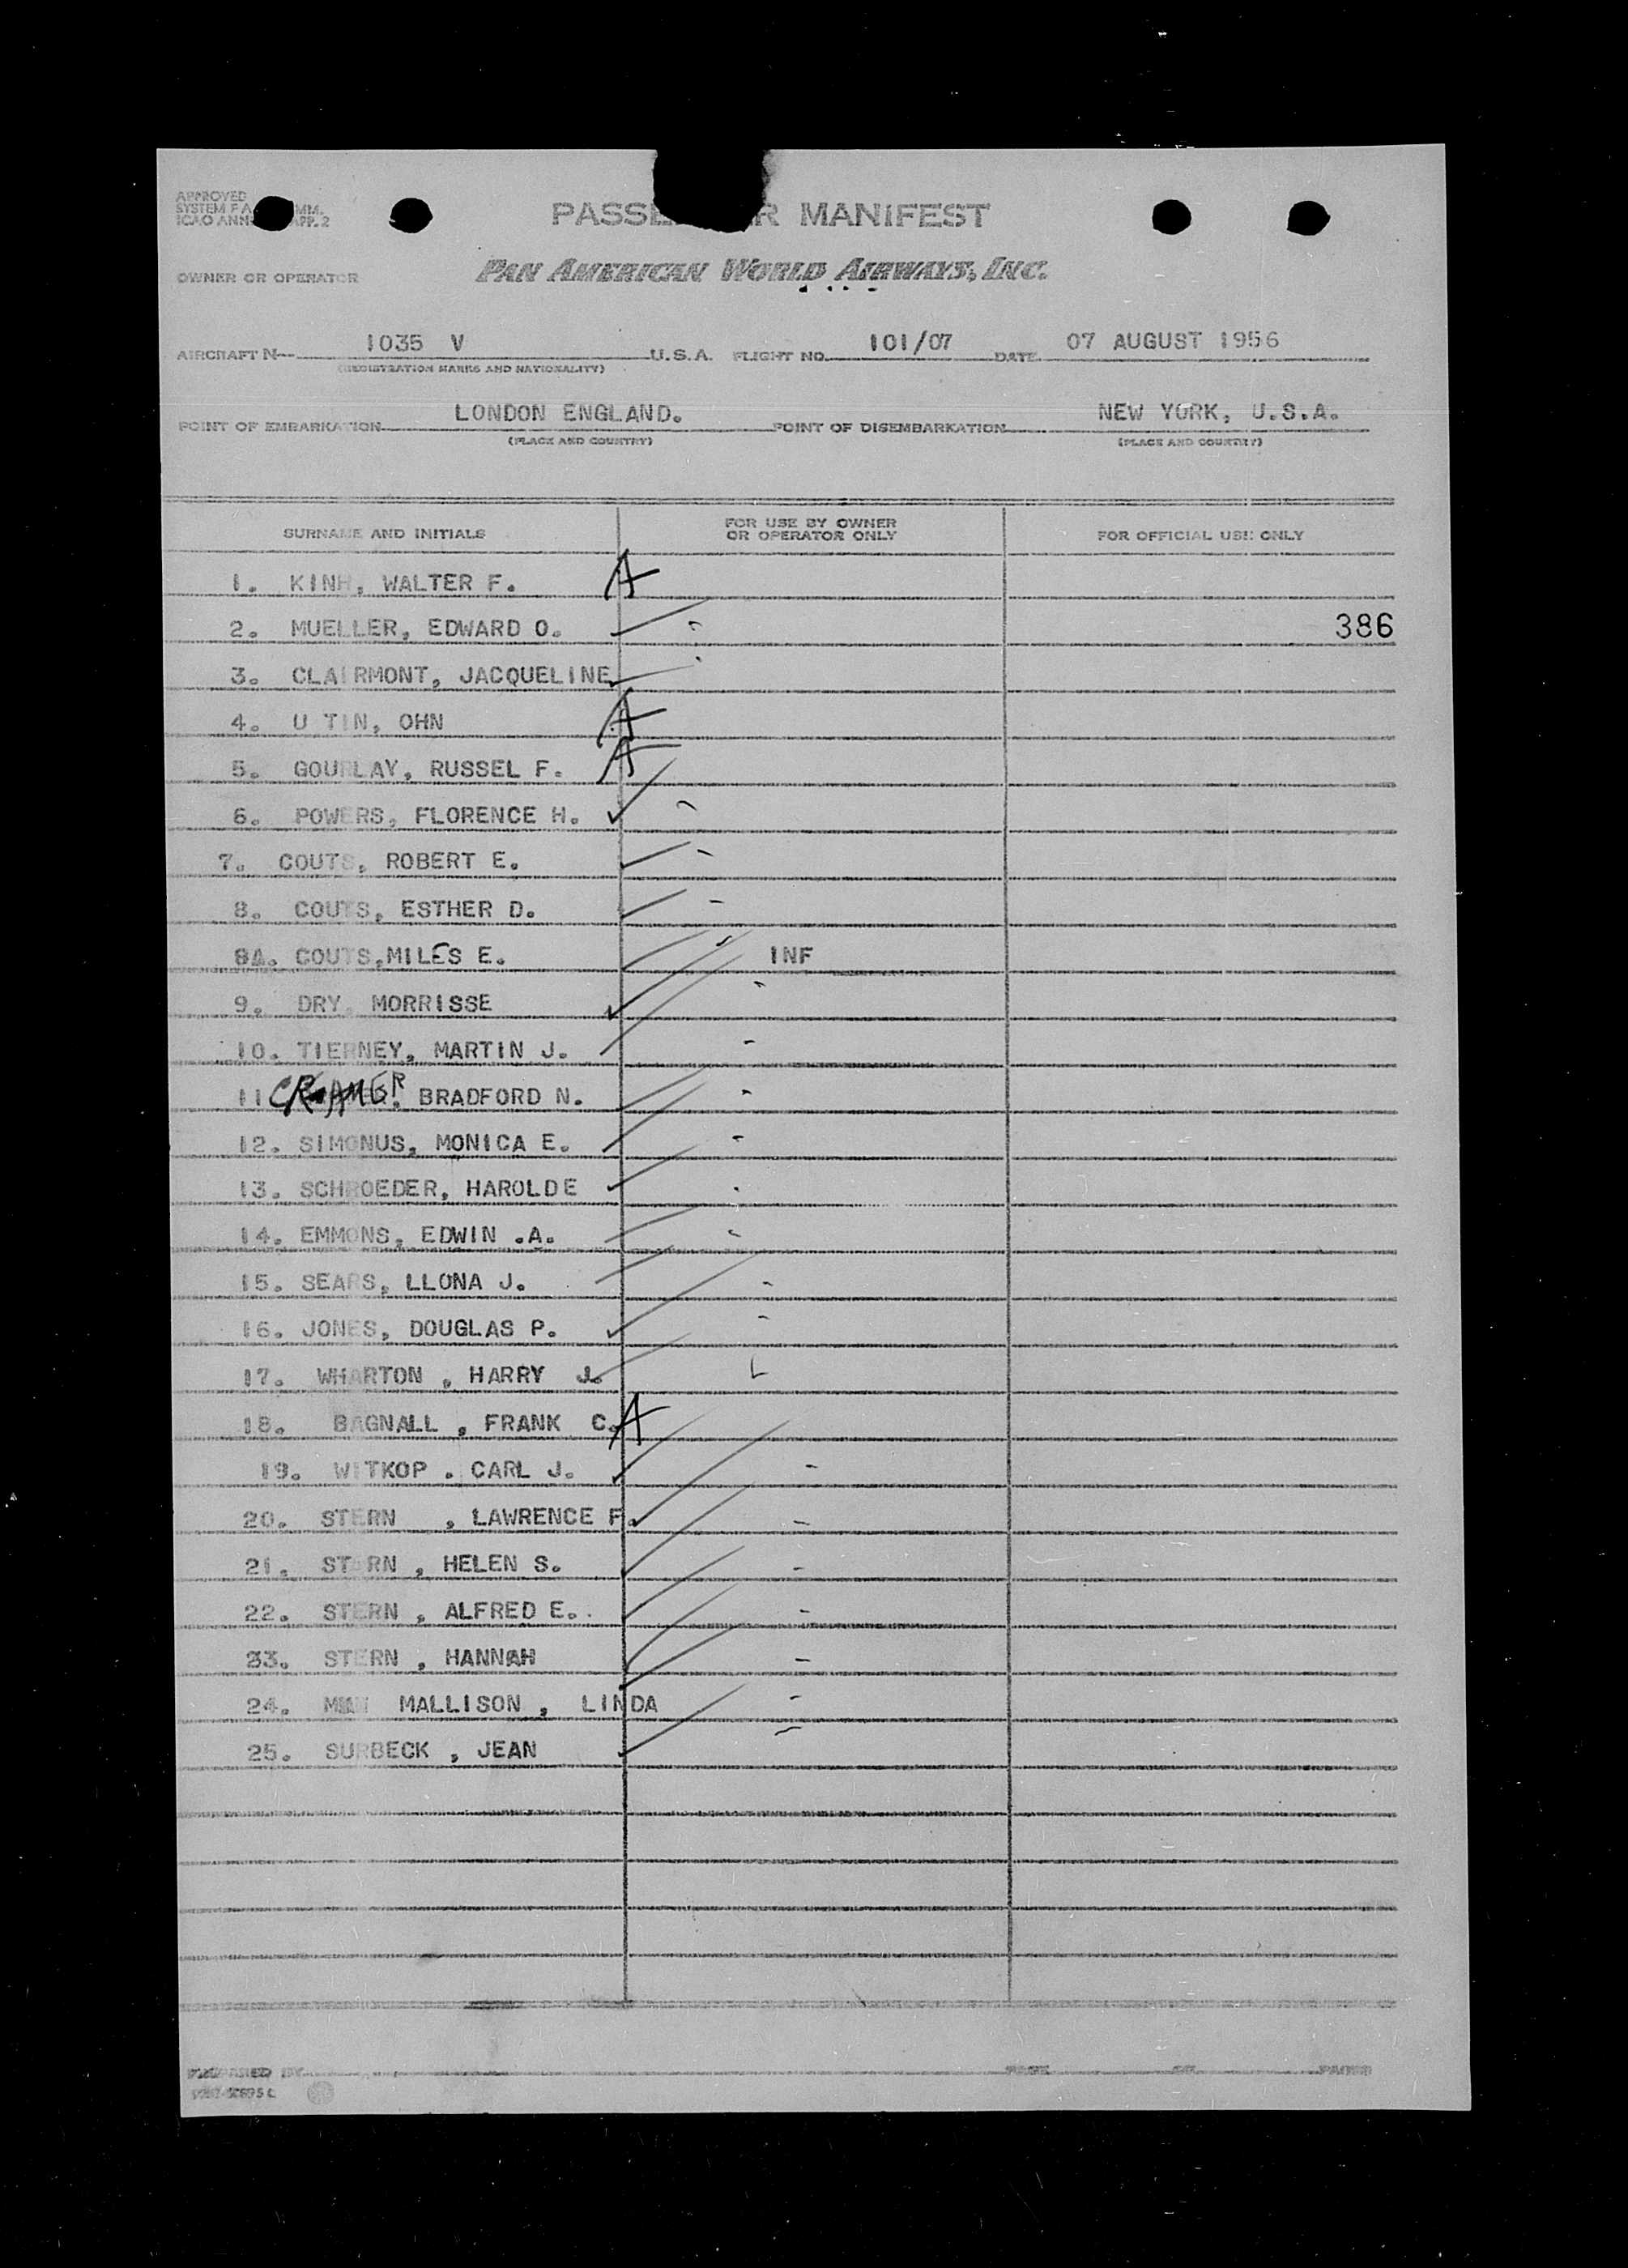 APPROVED
SYSTEM FA MM.
ICAO ANN APP. 2
PASSE R MANIFEST
OWNER OR OPERATOR PAN AMERICAN WORLD AIRWAYS, INC.
AIRCRAFT N 1035 V U.S.A. FLIGHT NO. 101/07 DATE 07 AUGUST 1956
(REGISTRATION MARKS AND NATIONALITY)
POINT OF EMBARKATION LONDON ENGLAND. POINT OF DISEMBARKATION NEW YORK, U.S.A.
(PLACE AND COUNTRY) (PLACE AND COUNTRY)
SURNAME AND INITIALS FOR USE BY OWNER OR OPERATOR ONLY FOR OFFICIAL USE ONLY
1. KINH, WALTER F. A
2. MUELLER, EDWARD O. 386
3. CLAIRMONT, JACQUELINE
4. U TIN, OHN A
5. GOURLAY, RUSSEL F. A
6. POWERS, FLORENCE H.
7. COUTS, ROBERT E.
8. COUTS, ESTHER D.
8A. COUTS,MILES E. INF
9. DRY, MORRISSE
10. TIERNEY, MARTIN J.
11 CRAMER, BRADFORD N.
12. SIMONUS, MONICA E.
13. SCHROEDER, HAROLDE
14. EMMONS, EDWIN .A.
15. SEARS, LLONA J.
16. JONES, DOUGLAS P.
17. WHARTON , HARRY J.
18. BAGNALL , FRANK C. A
19. WITKOP . CARL J.
20. STERN , LAWRENCE F.
21. STERN , HELEN S.
22. STERN , ALFRED E..
23. STERN , HANNAH
24. MALLISON , LINDA
25. SURBECK , JEAN
PREPARED BY PAGE OF PAGES